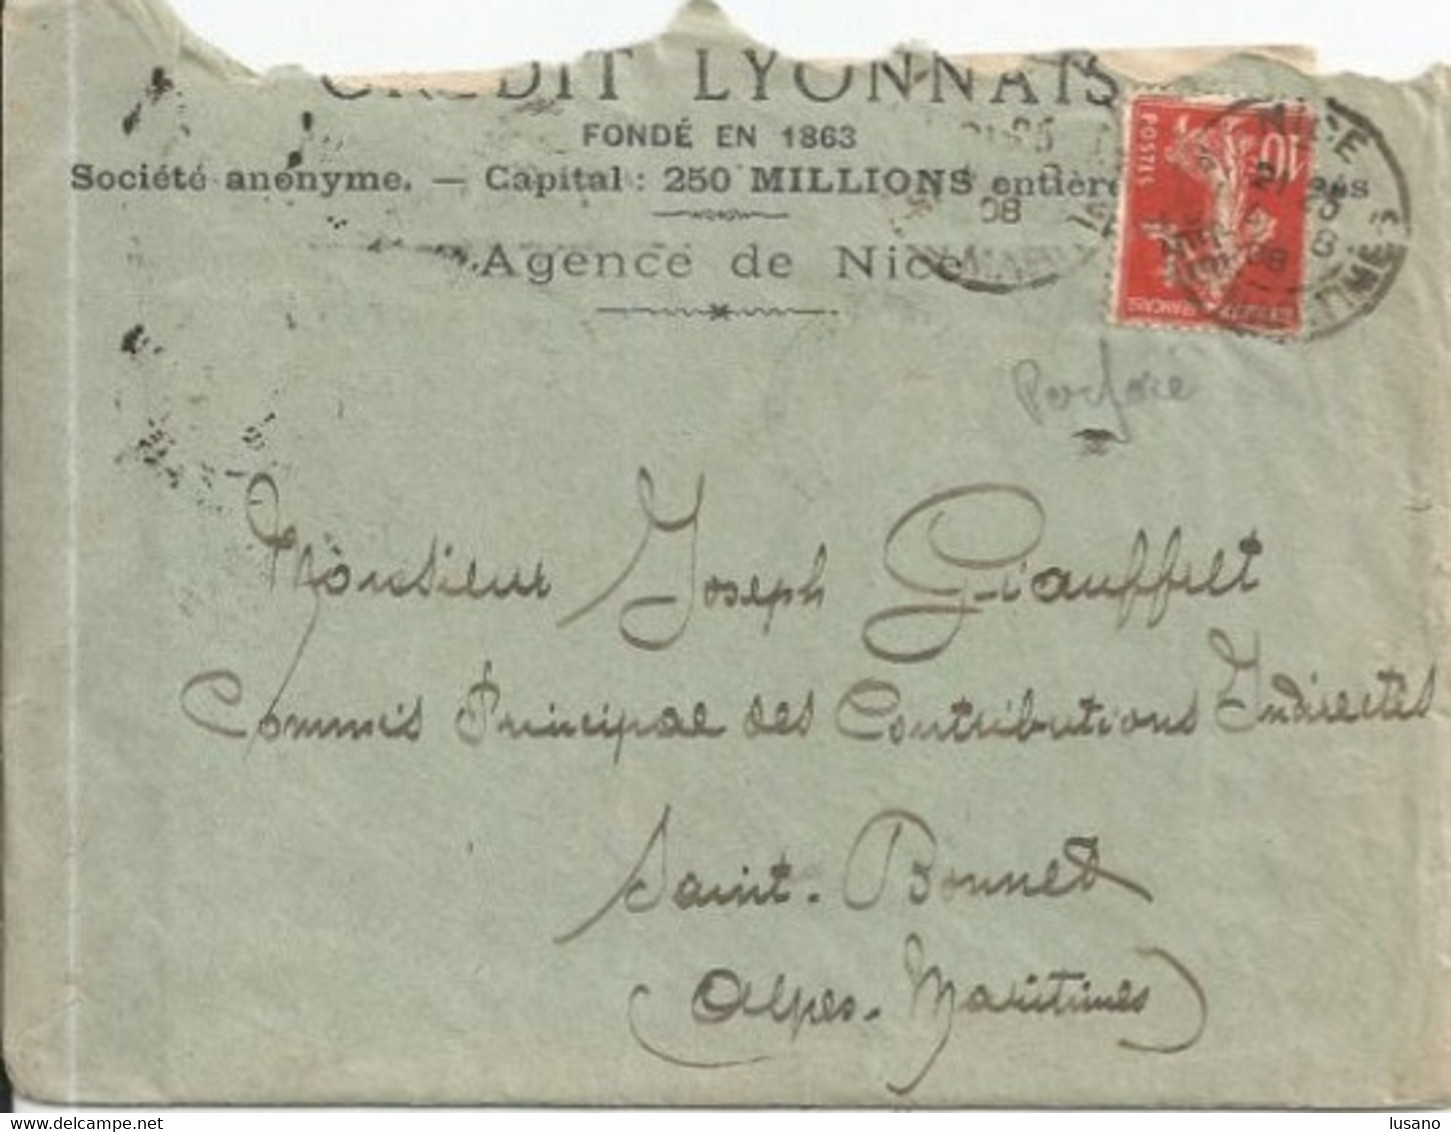 CRÉDIT LYONNAIS
FONDÉ EN 1863
Société anonyme. — Capital : 250 MILLIONS entièrement versés
Agence de Nice
POSTES
10
NICE
21
08
Perforé
Monsieur Joseph Giauffret
Commis Principal des Contributions Indirectes
Saint-Bonnet
(Alpes-Maritimes)
delcampe.net
lusano